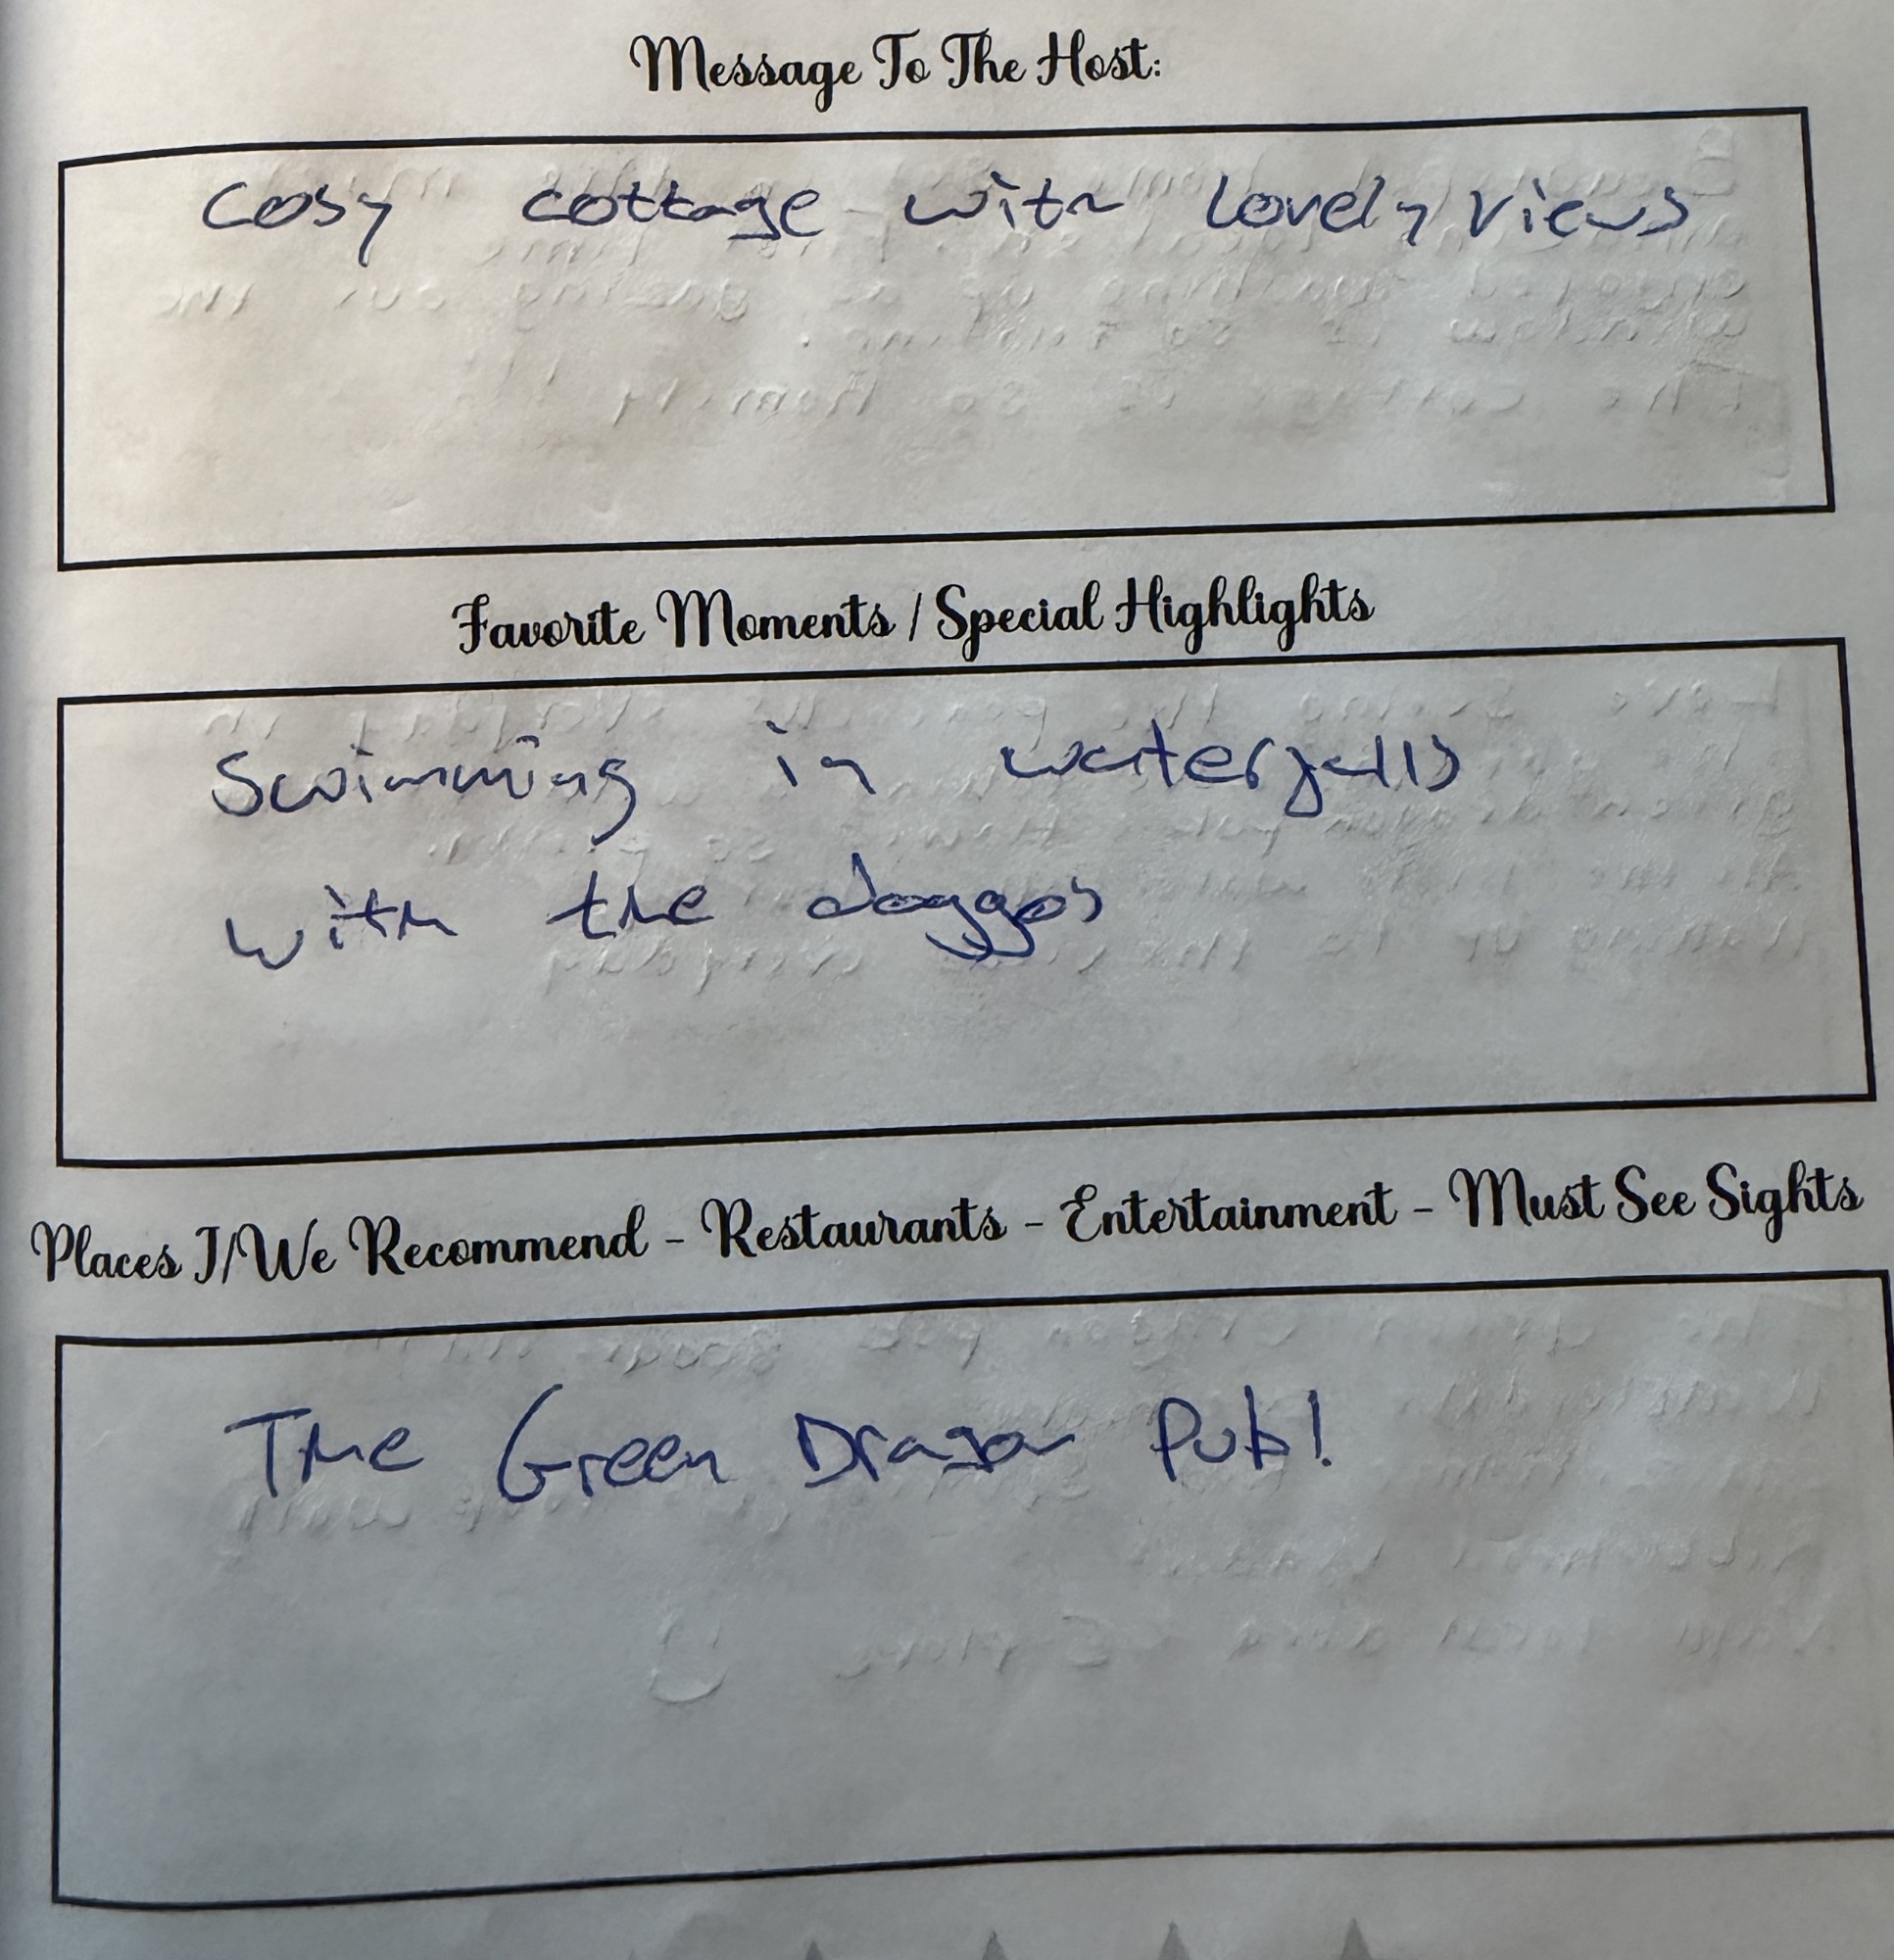 Message To The Host:
Cosy cottage with lovely views
Favorite Moments / Special Highlights
Swimming in waterfalls
with the doggos
Places I/We Recommend - Restaurants - Entertainment - Must See Sights
The Green Dragon Pub!